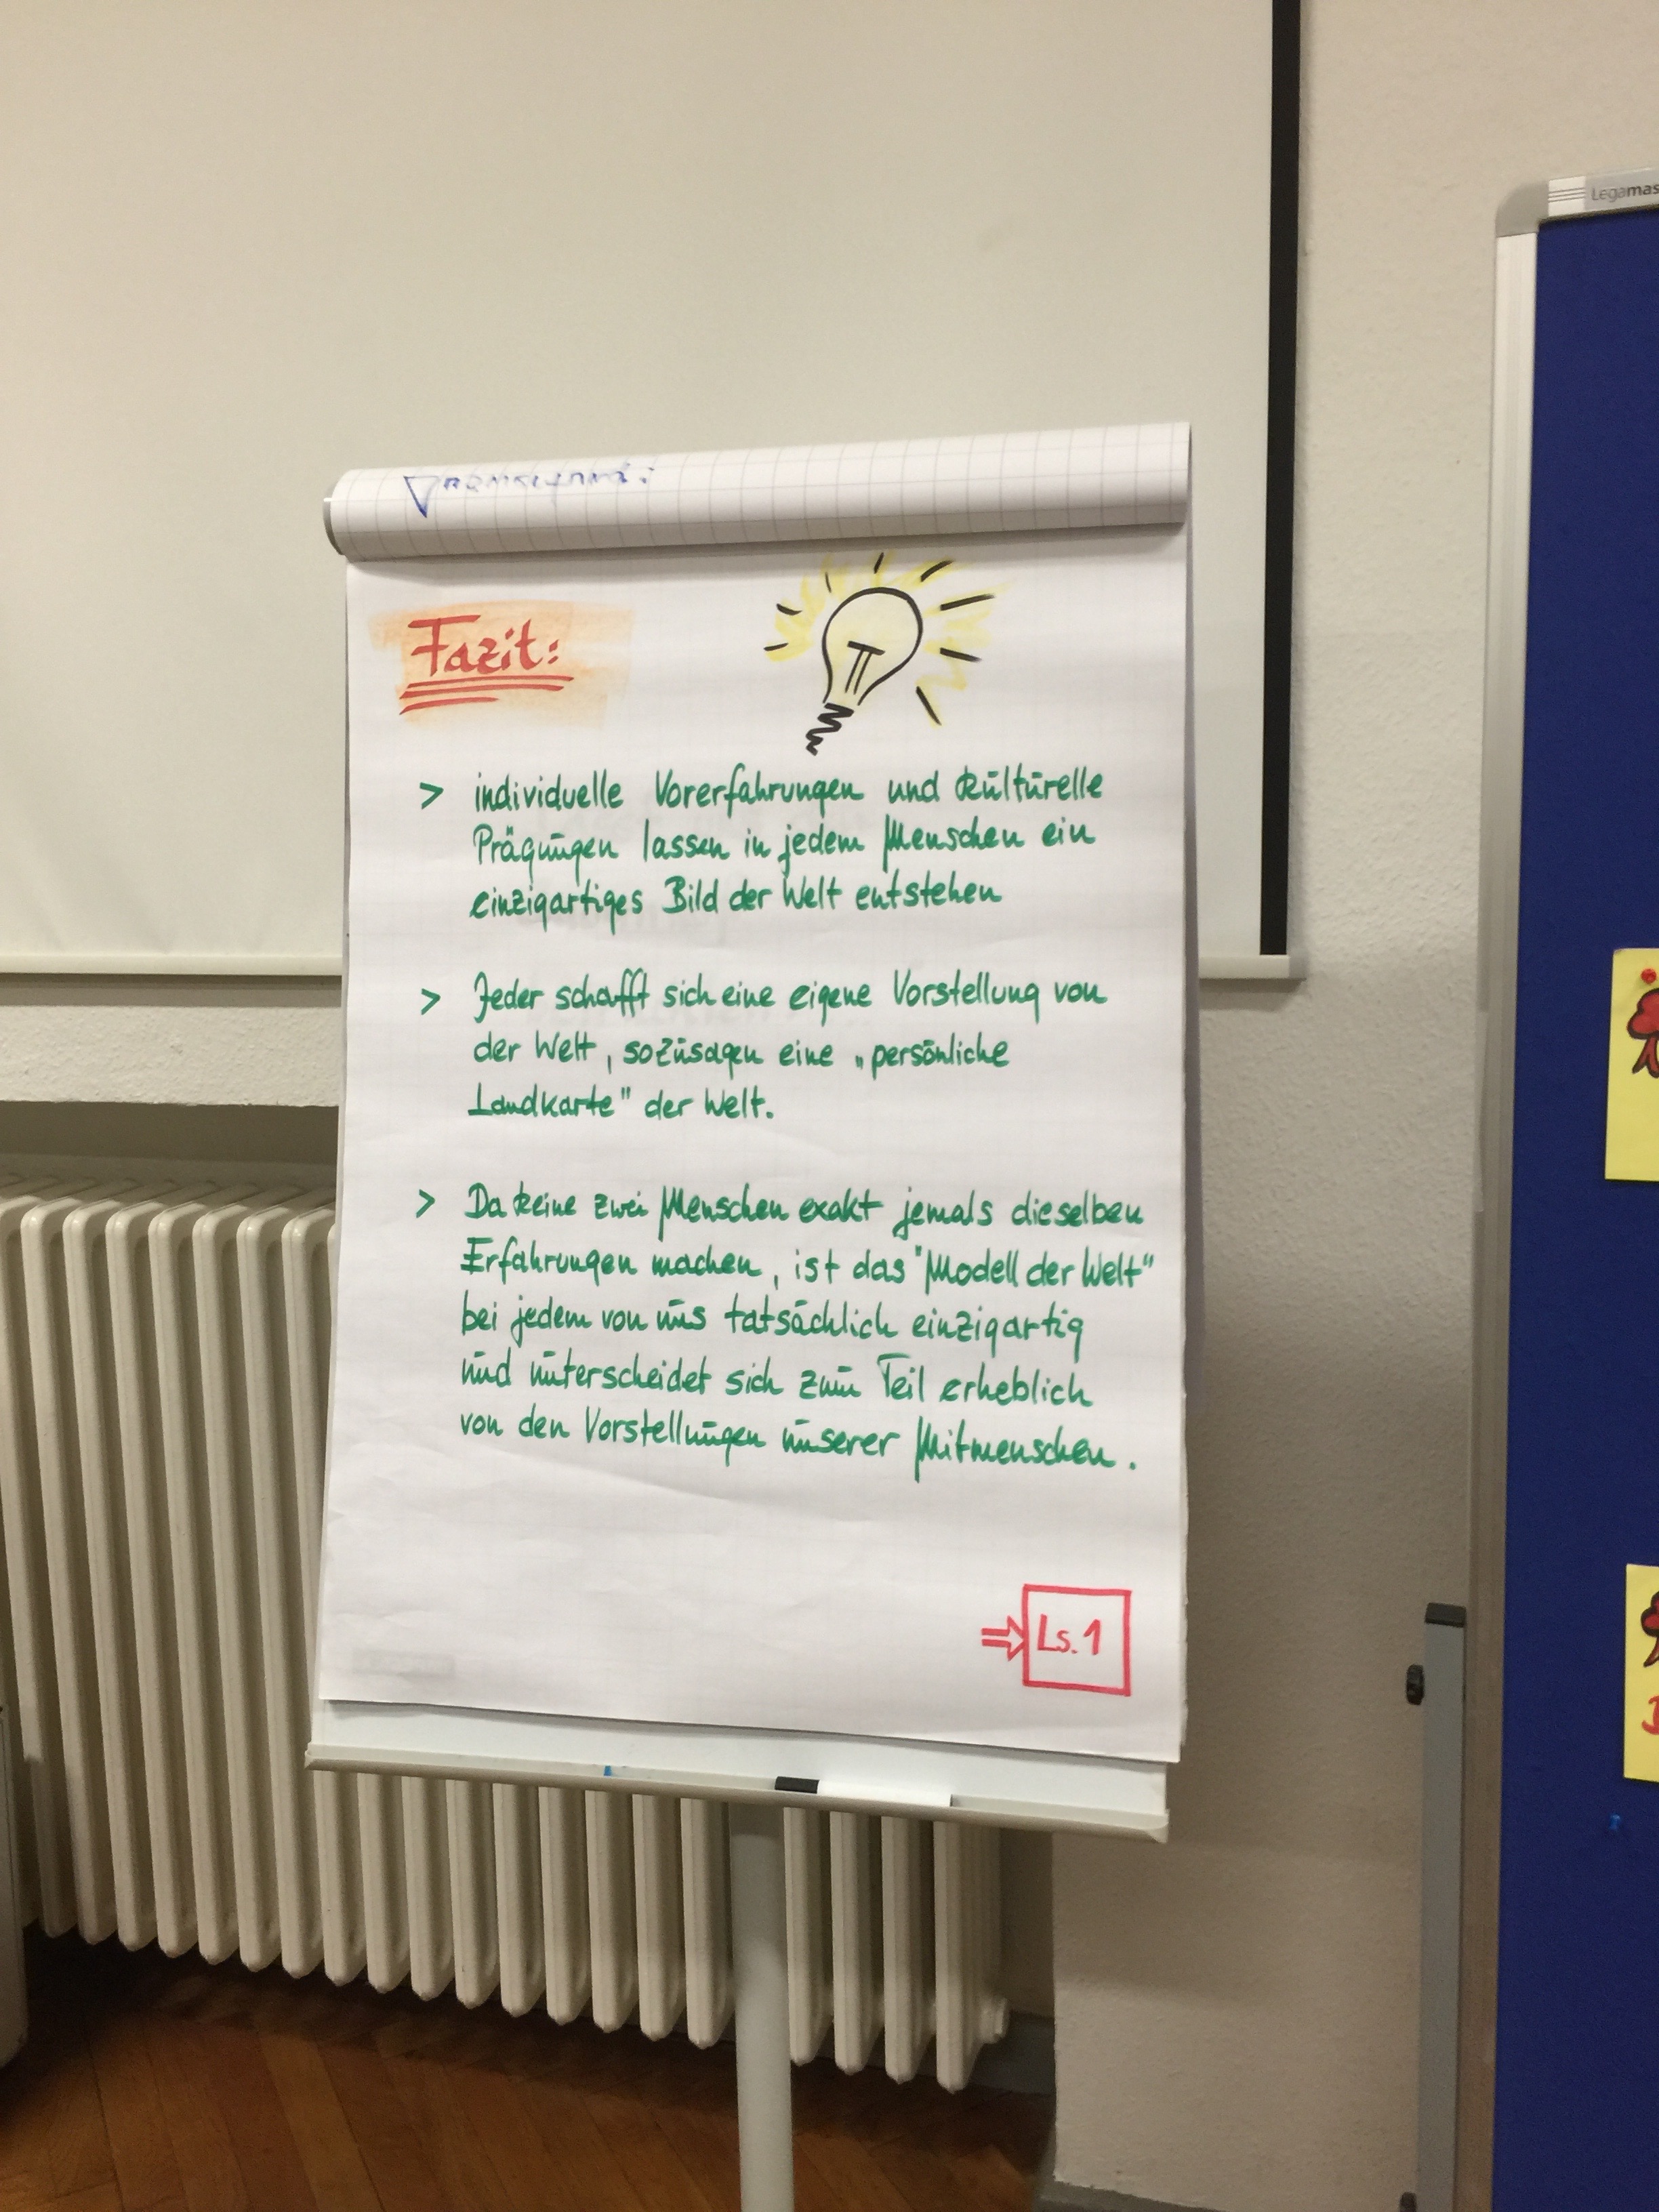 Legamas
Fazit:
> individuelle Vorerfahrungen und kulturelle
Prägungen lassen in jedem Menschen ein
einzigartiges Bild der Welt entstehen
> Jeder schafft sich eine eigene Vorstellung von
der Welt, sozusagen eine „persönliche
Landkarte" der Welt.
> Da keine zwei Menschen exakt jemals dieselben
Erfahrungen machen, ist das "Modell der Welt"
bei jedem von uns tatsächlich einzigartig
und unterscheidet sich zum Teil erheblich
von den Vorstellungen unserer Mitmenschen.
⇒ Ls. 1